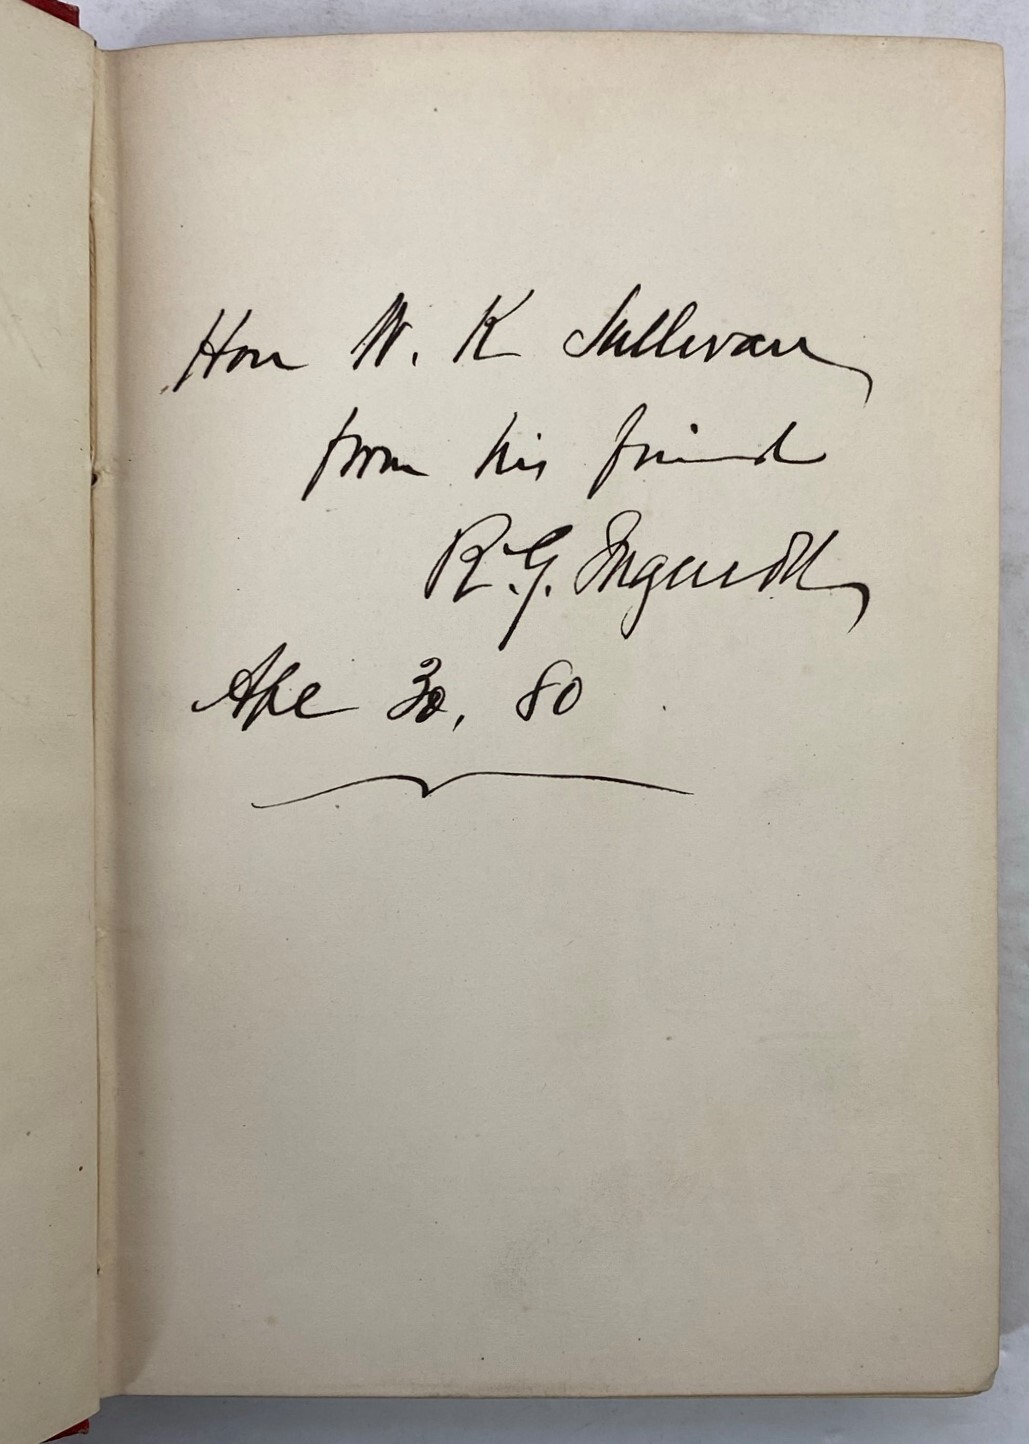 Hon W. K Sullivan
from his friend
R. G. Ingersoll
Apl 30, 80